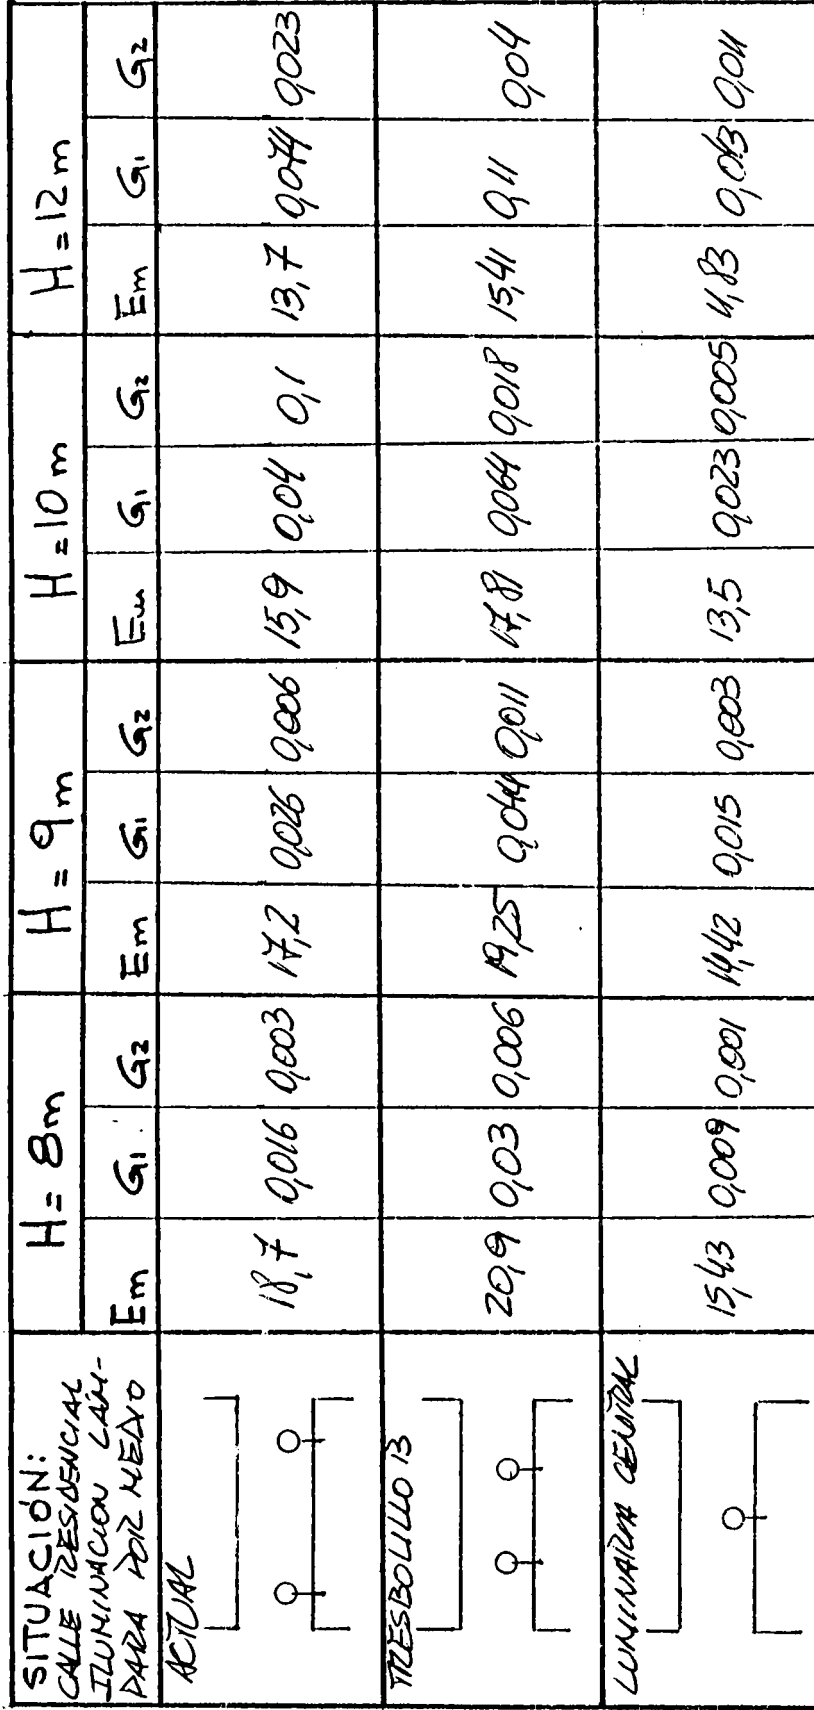 SITUACIÓN:
CALLE RESIDENCIAL
ILUMINACION LÁM-
PARA POR MEDIO
H = 8m H = 9m H = 10m H = 12m
Em G1 G2 Em G1 G2 Em G1 G2 Em G1 G2
ACTUAL
18,7 0,016 0,003 17,2 0,026 0,006 15,9 0,04 0,1 13,7 0,074 0,023
TRESBOLILLO 13
20,9 0,03 0,006 19,25 0,044 0,011 17,81 0,064 0,018 15,41 0,11 0,04
LUMINARIA CENTRAL
15,43 0,009 0,001 14,42 0,015 0,003 13,5 0,023 0,005 11,83 0,013 0,011